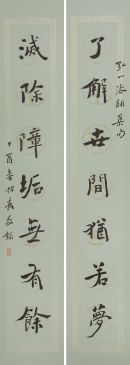 弘一法師集句
了解世間猶若夢
滅除障垢無有餘
丁酉